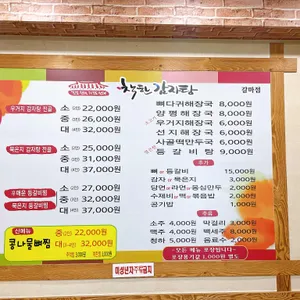 착한감자탕 갈마점
우거지 감자탕 전골
소 22,000원
중 26,000원
대 32,000원
묵은지 감자탕 전골
소 25,000원
중 31,000원
대 37,000원
우매운 등갈비찜
묵은지 등갈비찜
소 27,000원
중 32,000원
대 37,000원
신메뉴
콩나물뼈찜
중 22,000원
대 32,000원
뼈다귀해장국 8,000원
양평해장국 8,000원
우거지해장국 6,000원
선지해장국 6,000원
사골떡만두국 6,000원
등갈비탕 9,000원
추가
뼈 등갈비 15,000원
감자 묵은지 3,000원
당면 라면 2,000원
수제비 떡 2,000원
공기밥 1,000원
소주 4,000원 막걸리 3,000원
맥주 4,000원 백세주 8,000원
청하 5,000원 음료수 2,000원
모든 메뉴 포장됩니다
포장용기값 1,000원 별도
미성년자주류금지